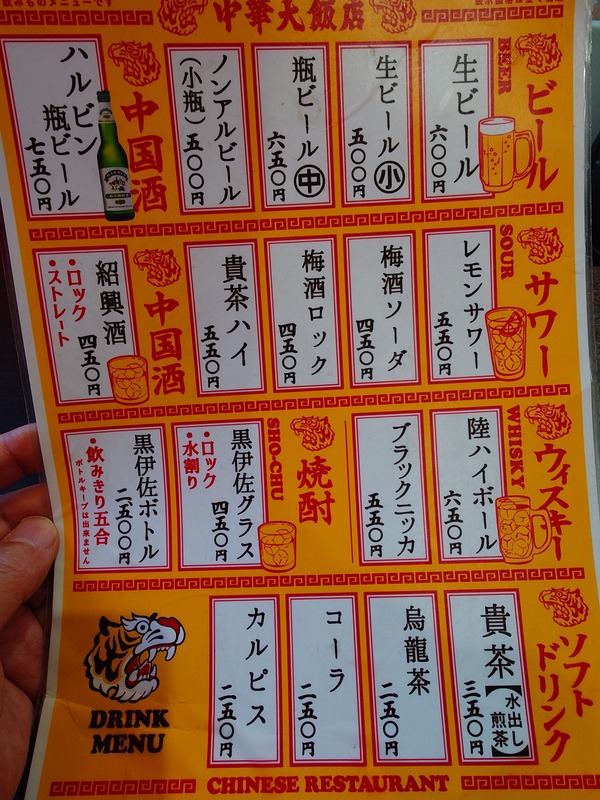 飲みものメニューです
中華大飯店
BEER
ビール
生ビール
六〇〇円
生ビール小
五〇〇円
瓶ビール中
六五〇円
ノンアルビール
(小瓶)五〇〇円
中国酒
ハルビン
瓶ビール
七五〇円
SOUR
サワー
レモンサワー
五五〇円
梅酒ソーダ
四五〇円
梅酒ロック
四五〇円
貴茶ハイ
五五〇円
中国酒
紹興酒
四五〇円
・ロック
・ストレート
WHISKY
ウィスキー
陸ハイボール
六五〇円
ブラックニッカ
五五〇円
SHO-CHU
焼酎
黒伊佐グラス
四五〇円
・ロック
・水割り
黒伊佐ボトル
二五〇〇円
・飲みきり五合
ボトルキープは出来ません
ソフト
ドリンク
貴茶【水出し煎茶】
三五〇円
烏龍茶
二五〇円
コーラ
二五〇円
カルピス
二五〇円
DRINK
MENU
CHINESE RESTAURANT